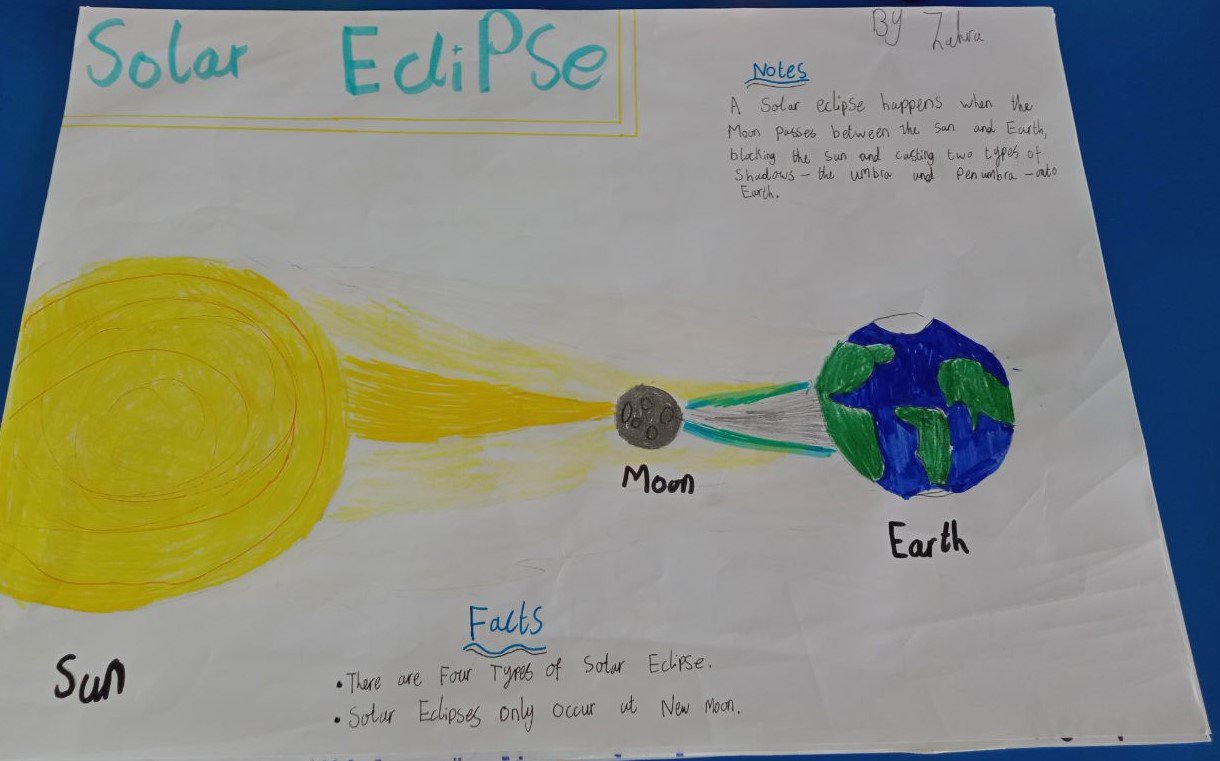 Solar Eclipse
By Zahra
Notes
A Solar eclipse happens when the
Moon passes between the sun and Earth,
blocking the sun and casting two types of
Shadows - the umbra and Penumbra - onto
Earth.
Moon
Earth
Sun
Facts
• There are Four Types of Solar Eclipse.
• Solar Eclipses only occur at New Moon.